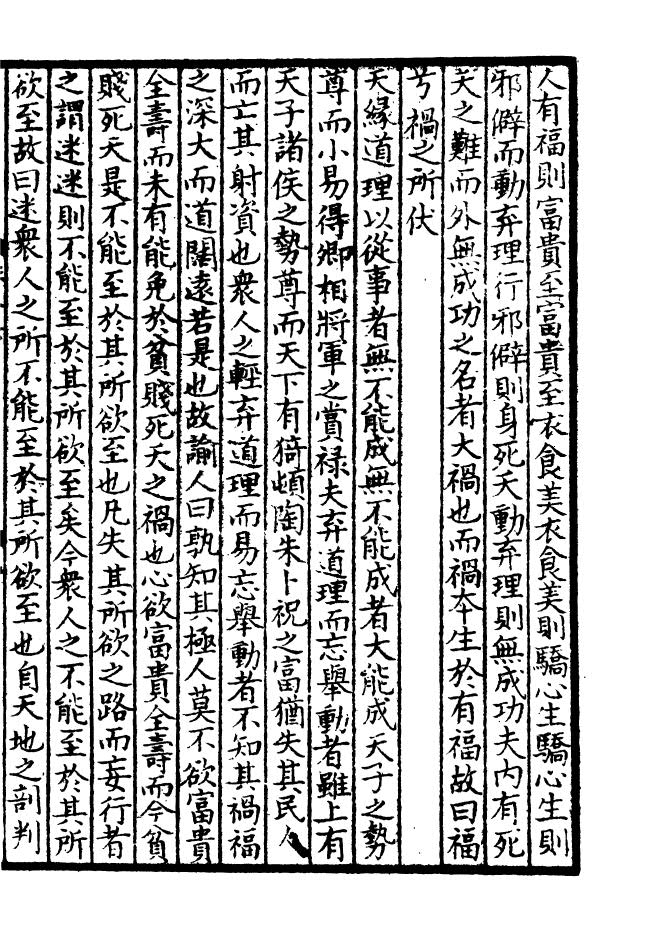 人有福則富貴至富貴至衣食美衣食美則驕心生驕心生則
邪僻而動弃理行邪僻則身死夭動弃理則無成功夫内有死
夭之難而外無成功之名者大禍也而禍夲生於有福故曰福
兮禍之所伏
夫緣道理以從事者無不能成無不能成者大能成天子之勢
尊而小易得卿相將軍之賞禄夫弃道理而忘舉動者雖上有
天子諸侯之勢尊而天下有猗頓陶朱卜祝之富猶失其民人
而亡其財資也衆人之輕弃道理而易忘舉動者不知其禍福
之深大而道闊遠若是也故諭人曰孰知其極人莫不欲富貴
全壽而未有能免於貧賤死夭之禍也心欲富貴全壽而今貧
賤死夭是不能至於其所欲至也凡失其所欲之路而妄行者
之謂迷迷則不能至於其所欲至矣今衆人之不能至於其所
欲至故曰迷衆人之所不能至於其所欲至也自天地之剖判